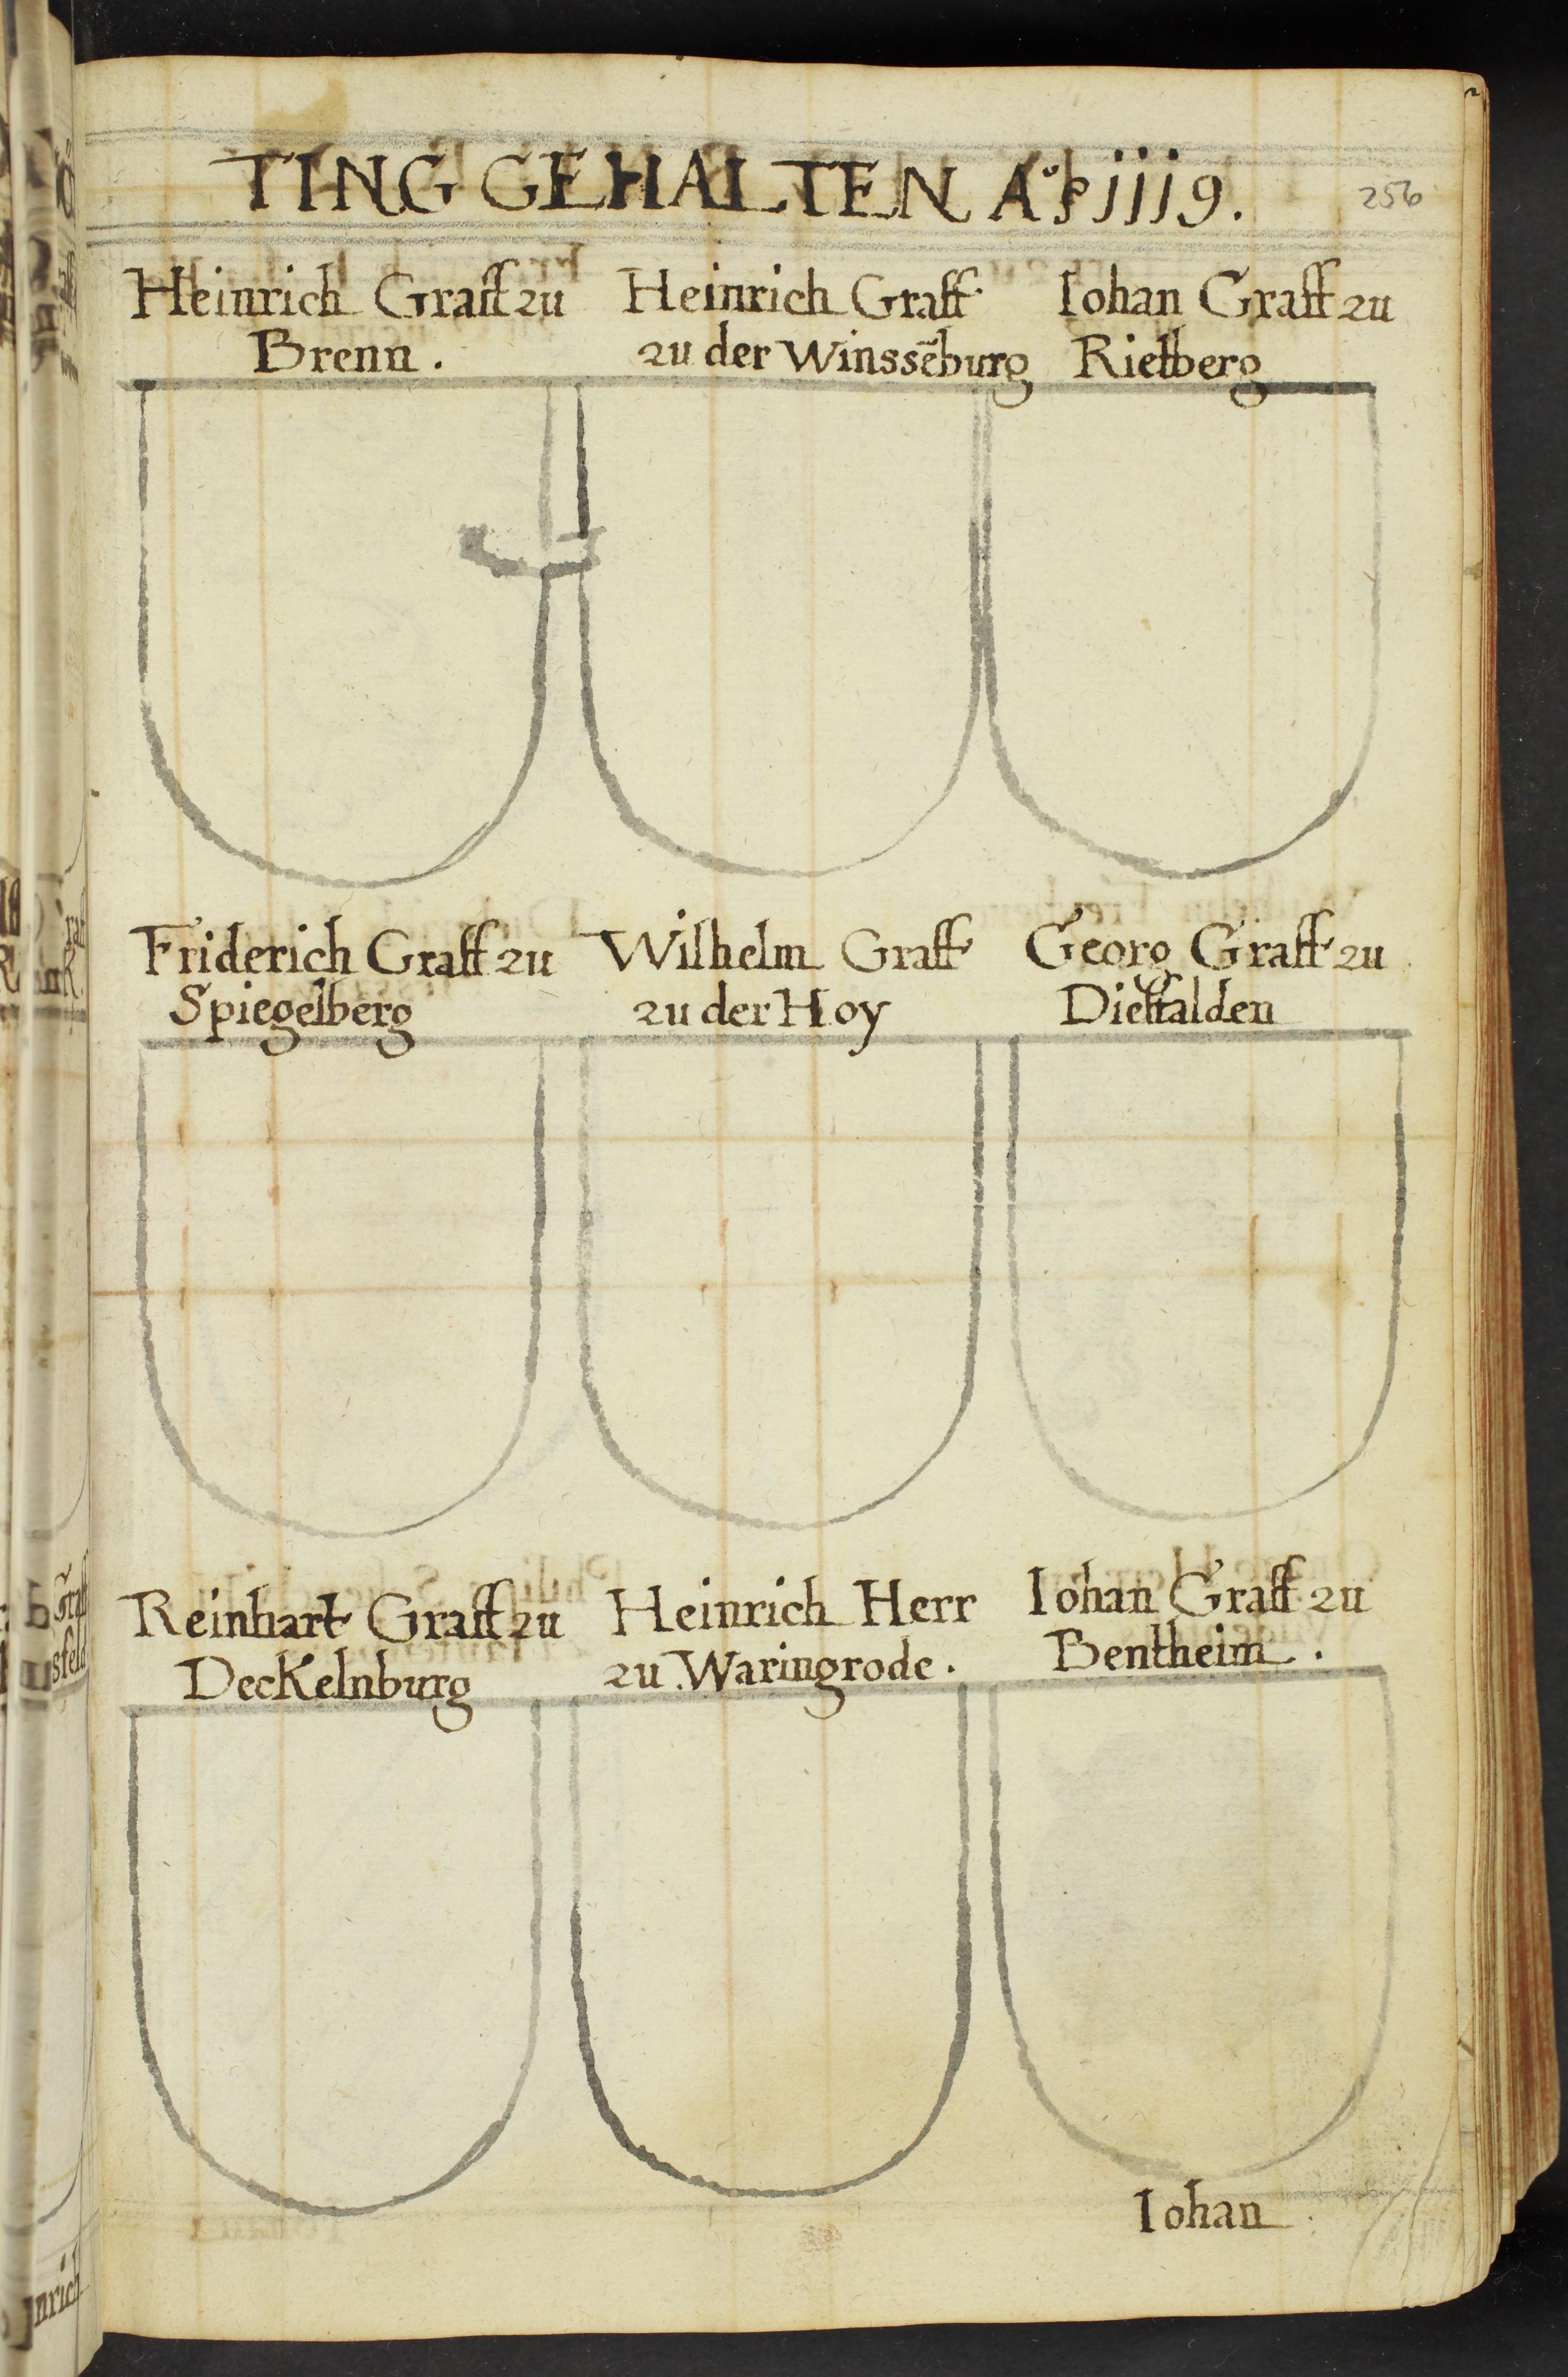 TING GEHALTEN Aº jjj9.
256
Heinrich Graff zu
Brenn.
Heinrich Graff
zu der Winssēburg
Iohan Graff zu
Rietberg
Friderich Graff zu
Spiegelberg
Wilhelm Graff
zu der Hoy
Georg Graff zu
Dieffalden
Reinhart Graff zu
Deckelnburg
Heinrich Herr
zu Waringrode.
Iohan Graff zu
Bentheim.
Iohan